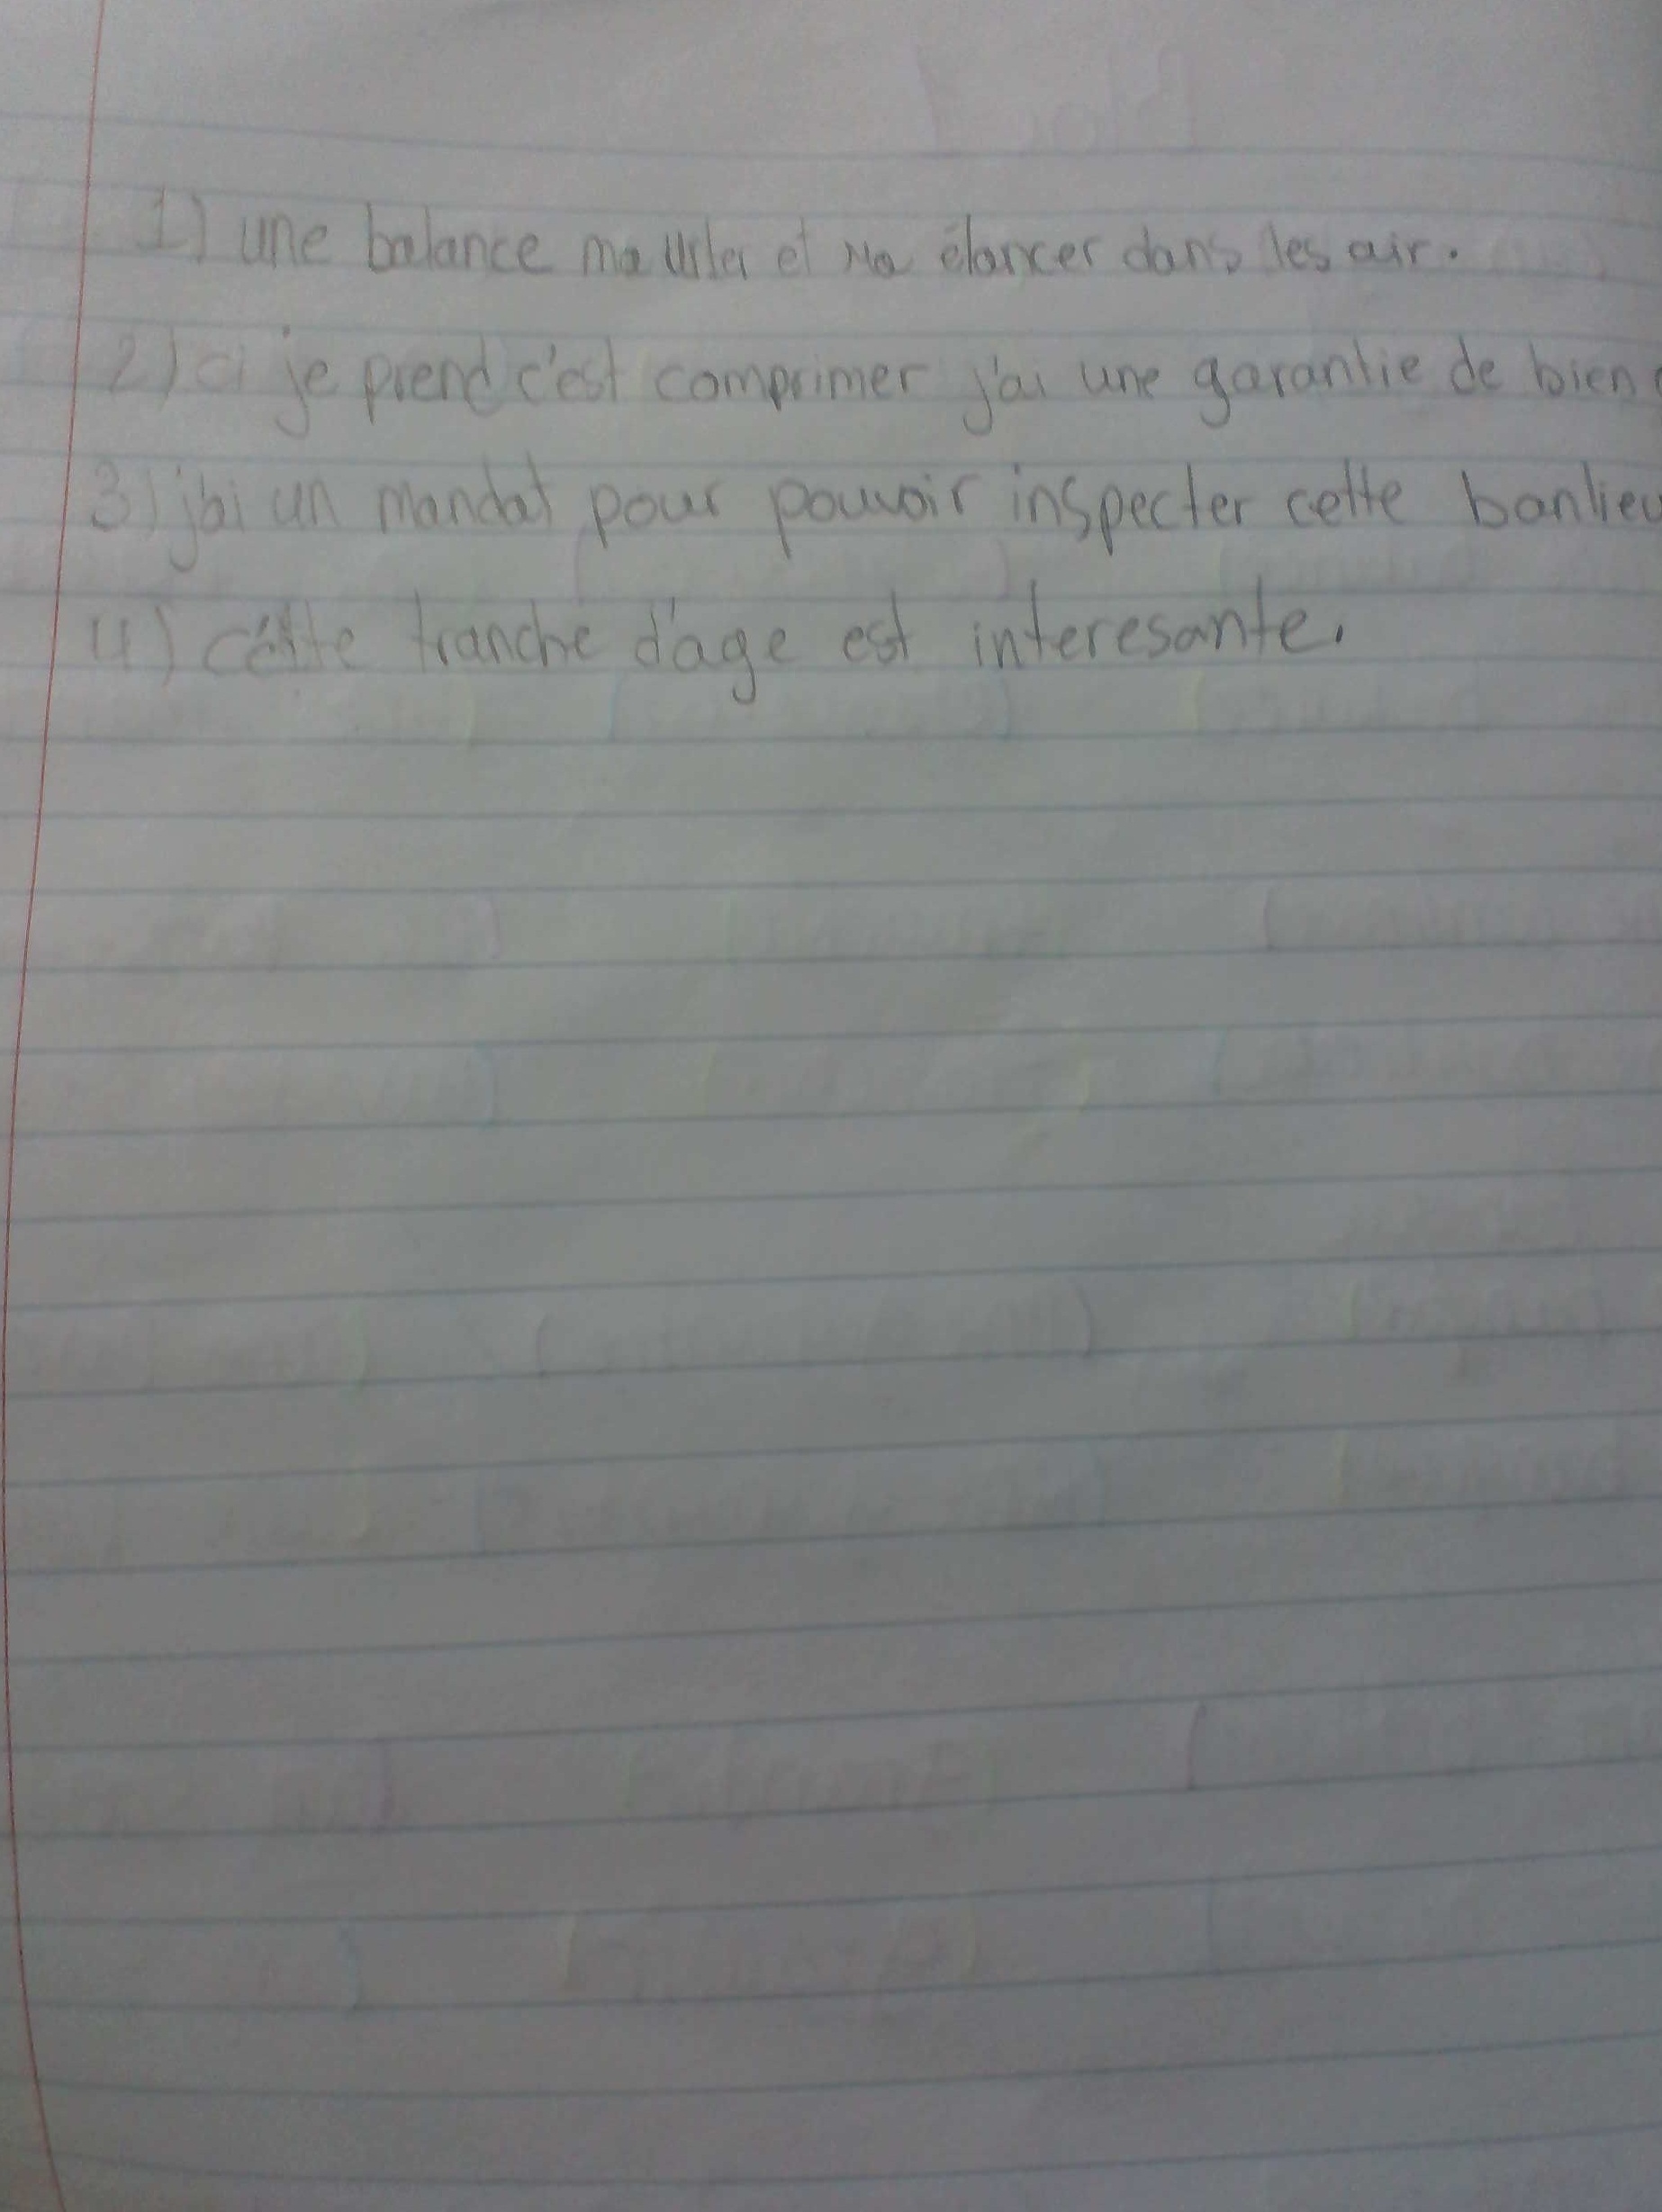 1) une balance ma et ma élancer dans les air.
2) ci je prend c'est comprimer j'ai une garantie de bien
3) j'ai un mandat pour pouvoir inspecter cette banlieu
4) cette tranche d'age est interesante.